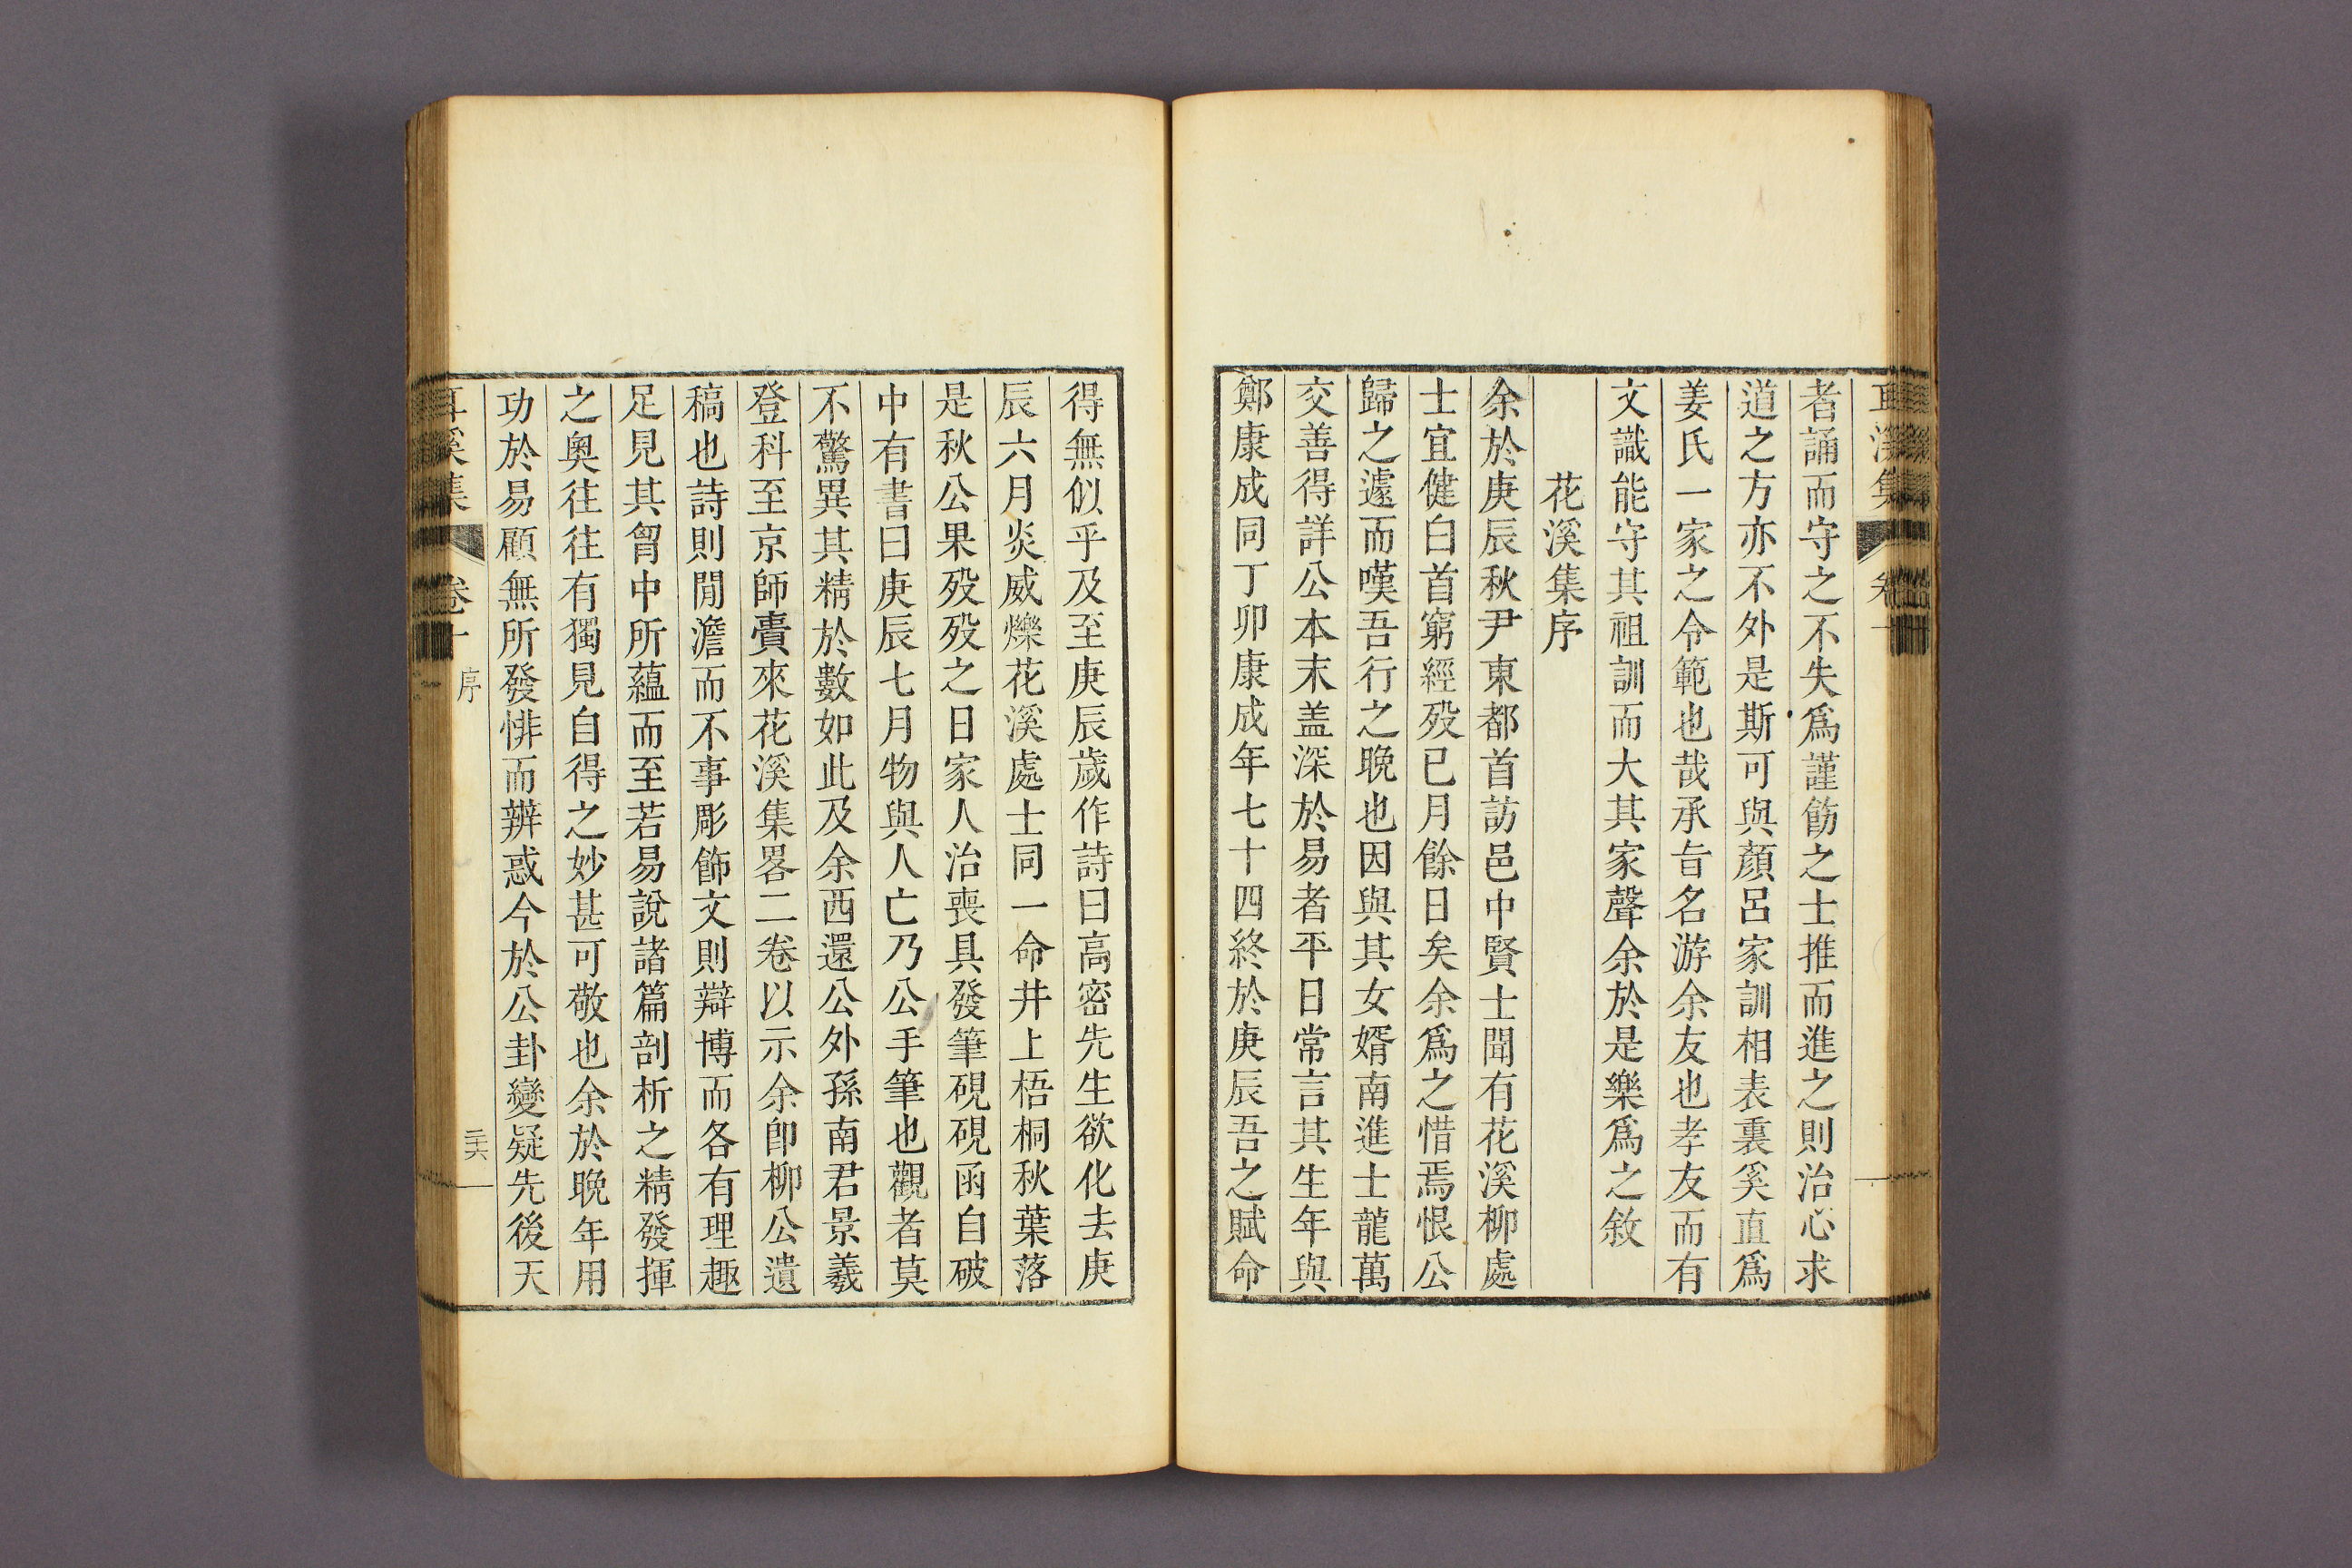 耳溪集
卷十
者誦而守之不失爲謹飭之士推而進之則治心求
道之方亦不外是斯可與顏呂家訓相表裏奚直爲
姜氏一家之令範也哉承旨名游余友也孝友而有
文識能守其祖訓而大其家聲余於是樂爲之敘
花溪集序
余於庚辰秋尹東都首訪邑中賢士聞有花溪柳處
士宜健白首窮經歿已月餘日矣余爲之惜焉恨公
歸之遽而嘆吾行之晩也因與其女婿南進士龍萬
交善得詳公本末盖深於易者平日常言其生年與
鄭康成同丁卯康成年七十四終於庚辰吾之賦命
得無似乎及至庚辰歲作詩曰高密先生欲化去庚
辰六月炎威爍花溪處士同一命井上梧桐秋葉落
是秋公果歿歿之日家人治喪具發筆硯硯函自破
中有書曰庚辰七月物與人亡乃公手筆也觀者莫
不驚異其精於數如此及余西還公外孫南君景羲
登科至京師賷來花溪集畧二卷以示余卽柳公遺
稿也詩則閒澹而不事彫飾文則辯博而各有理趣
足見其胷中所蘊而至若易說諸篇剖析之精發揮
之奧往往有獨見自得之妙甚可敬也余於晩年用
功於易顧無所發悱而辨惑今於公卦變疑先後天
耳溪集
卷十
序
二六